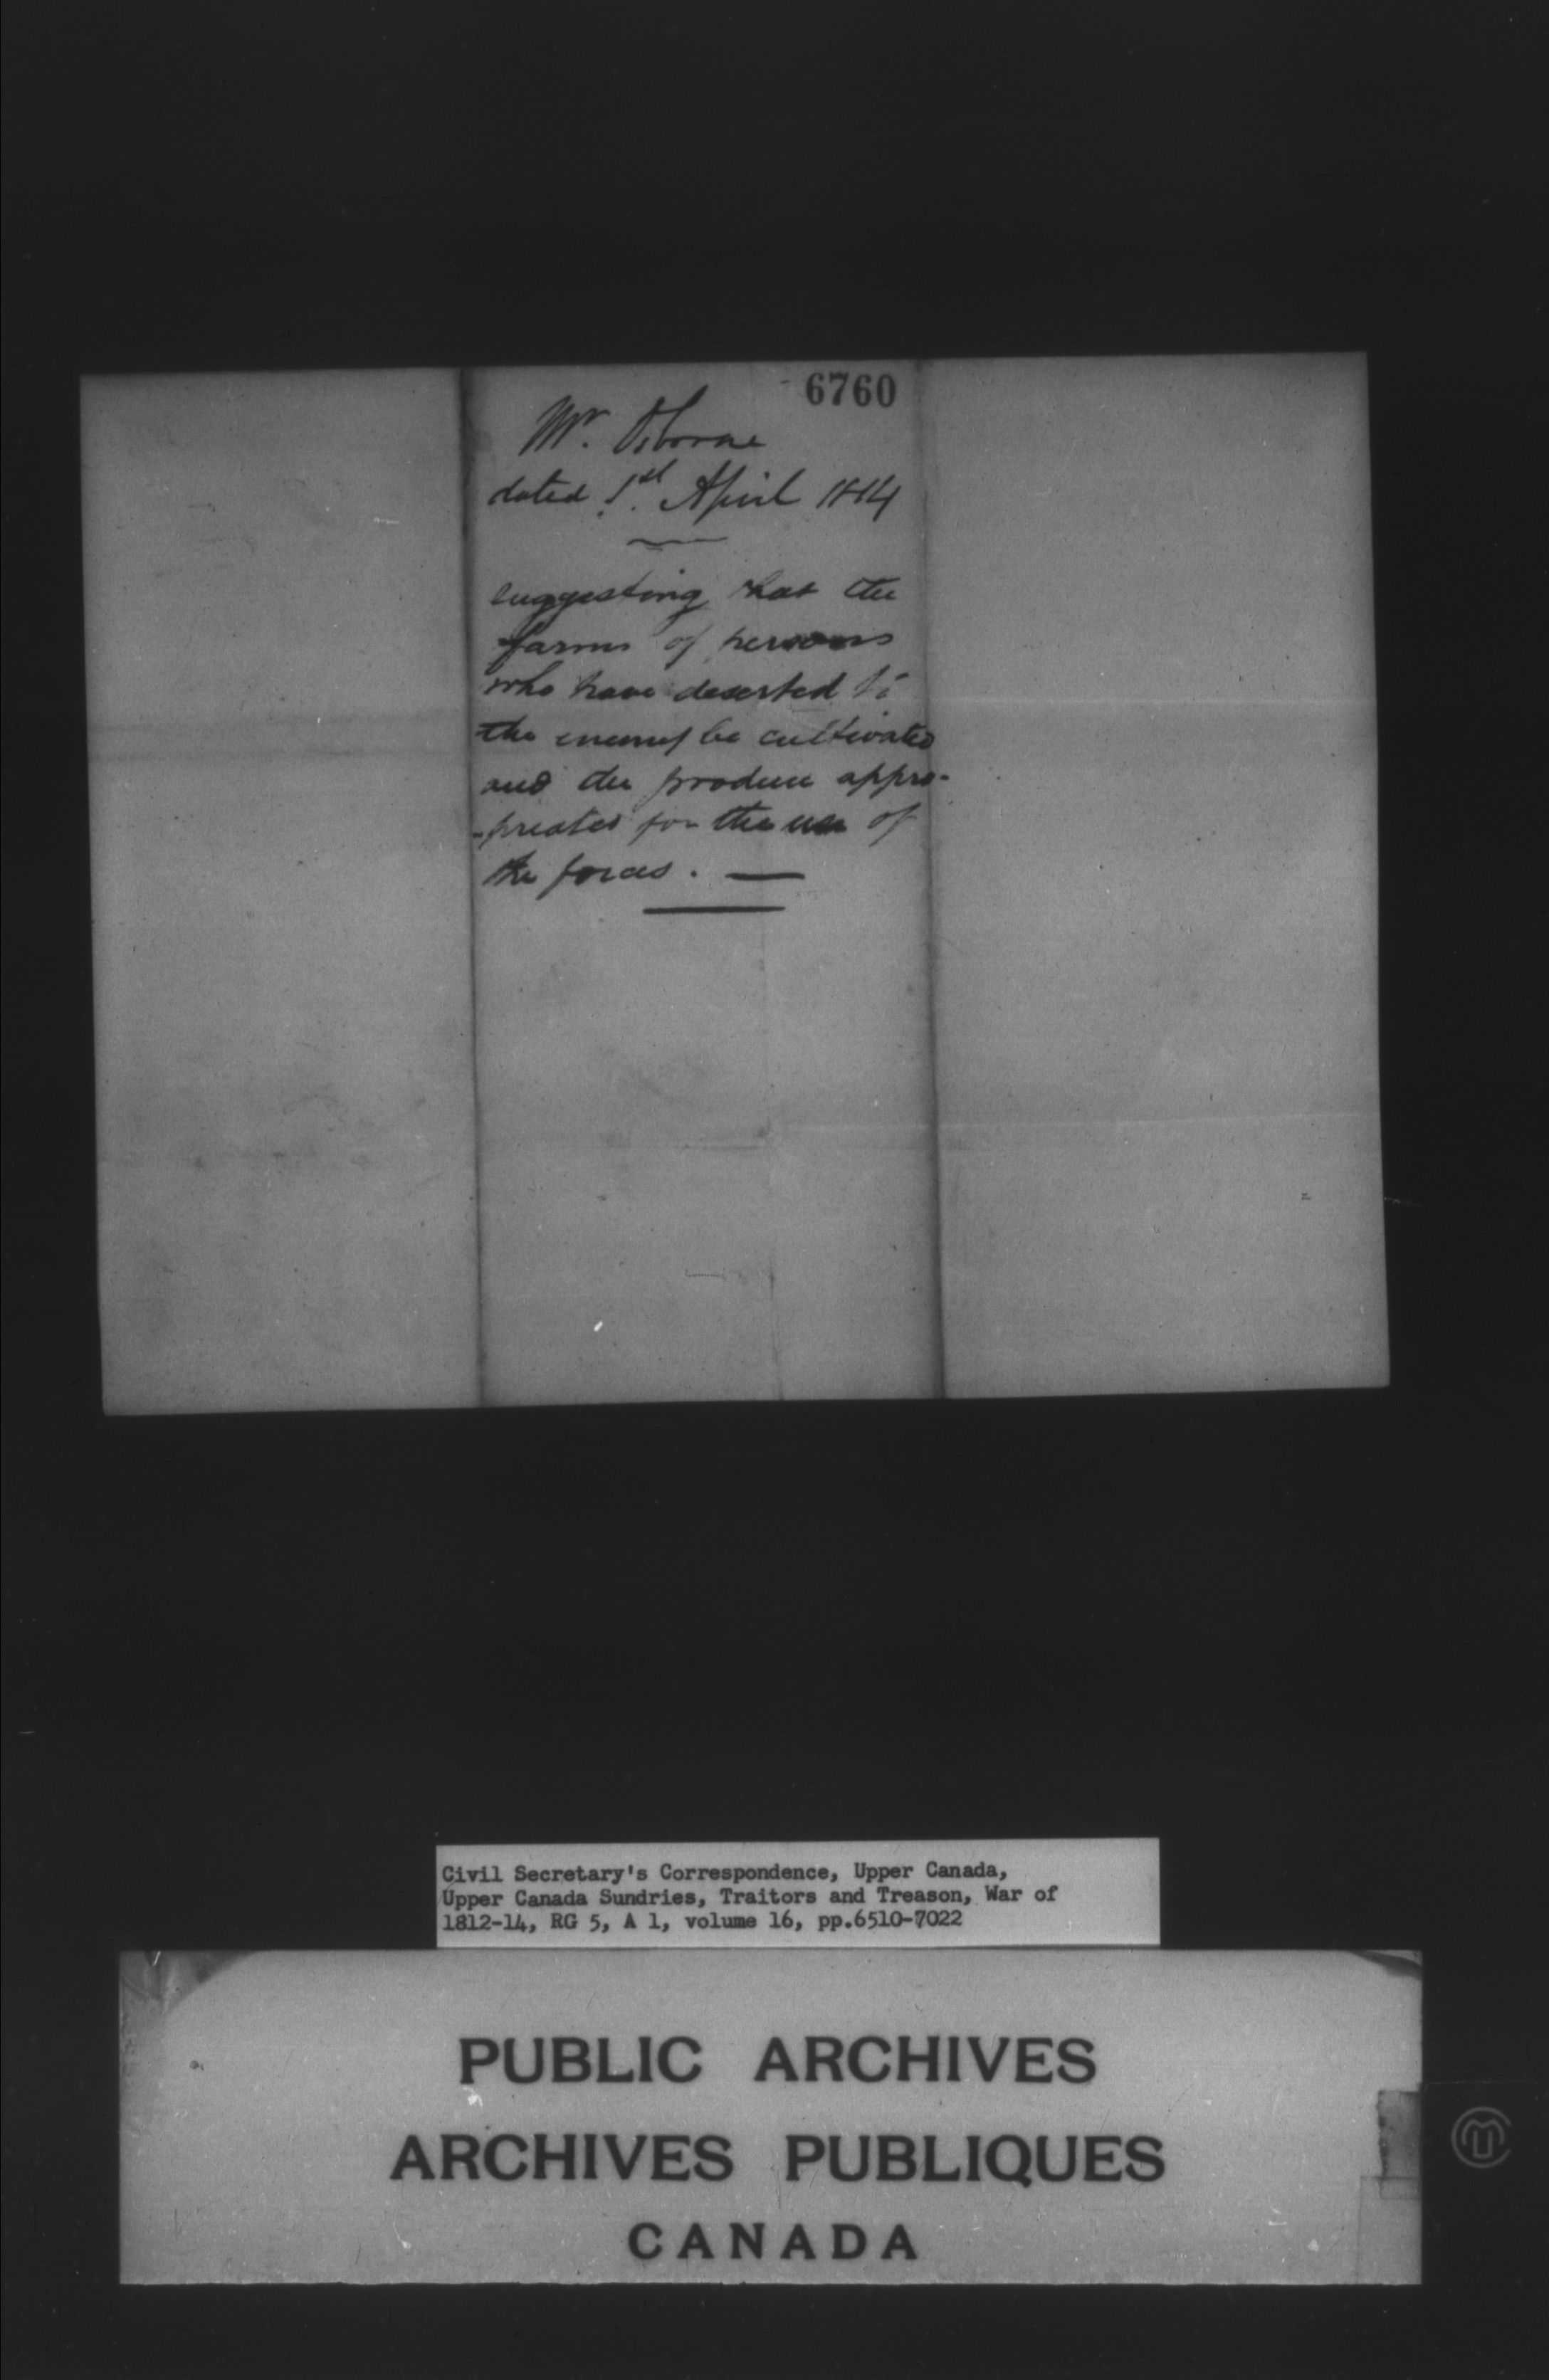 6760
Mr. Osborne
dated 1st April 1814
suggesting that the
farms of persons
who have deserted to
the enemy be cultivated
and the produce appro-
-priated for the use of
the forces. —
Civil Secretary's Correspondence, Upper Canada,
Upper Canada Sundries, Traitors and Treason, War of
1812-14, RG 5, A 1, volume 16, pp.6510-7022
PUBLIC ARCHIVES
ARCHIVES PUBLIQUES
CANADA